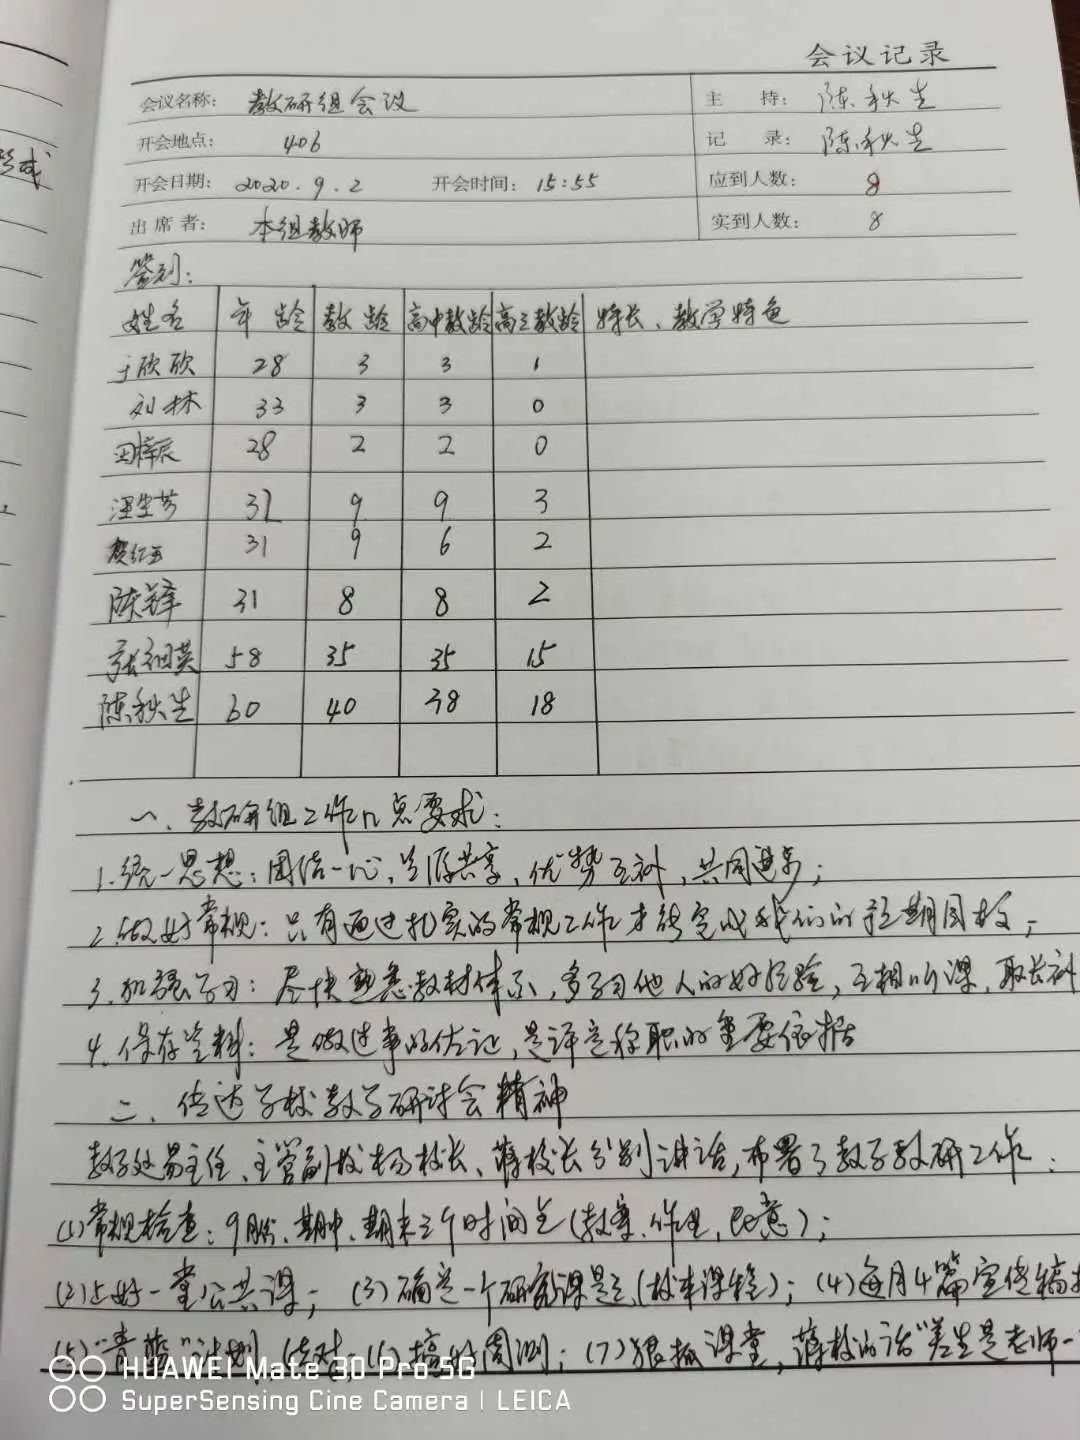 会议记录
会议名称： 教研组会议 主 持： 陈秋生
开会地点： 406 记 录： 陈秋生
开会日期： 2020.9.2 开会时间：15:55 应到人数： 8
出 席 者： 本组教师 实到人数： 8
签到：
姓名 年龄 教龄 高中教龄 高三教龄 特长、教学特色
于欣欣 28 3 3 1
刘林 33 3 3 0
田梓辰 28 2 2 0
9 9 3
贺红玉 31 9 6 2
陈锋 31 8 8 2
张细英 58 35 35 15
陈秋生 60 40 38 18
一、教研组工作几点要求：
1.统一思想：团结一心、资源共享、优势互补，共同进步；
2.做好常规：只有通过扎实的常规工作才能完成我们的预期目标；
3.加强学习：尽快熟悉教材体系，多学习他人的好经验，互相听课，取长补
4.保存资料：是做过事的佐证，是评定称职的重要依据
二、传达学校教学研讨会精神
教学处易主任、主管副校杨校长、蒋校长分别讲话，布署了教学教研工作：
(1)常规检查：9月份、期中、期末三个时间点（教案、作业，）；
(2)上好一堂公共课； (3)确定一个研究课题（校本课程）；(4)每月4篇宣传稿
(5)"青蓝"计划，结对 (6)搞好周测；(7)狠抓课堂，蒋校的话"差生是老师一
HUAWEI Mate 30 Pro 5G
SuperSensing Cine Camera | LEICA
形成